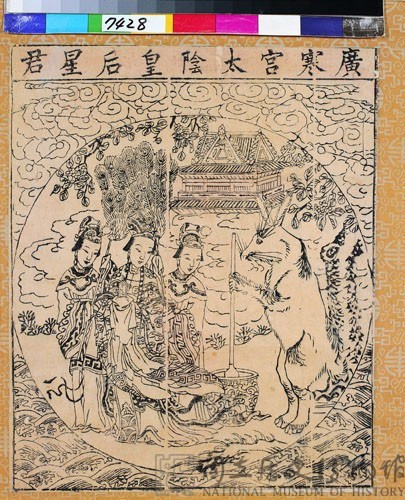 7428
廣寒宮太陰皇后星君
國立歷史博物館
NATIONAL MUSEUM OF HISTORY